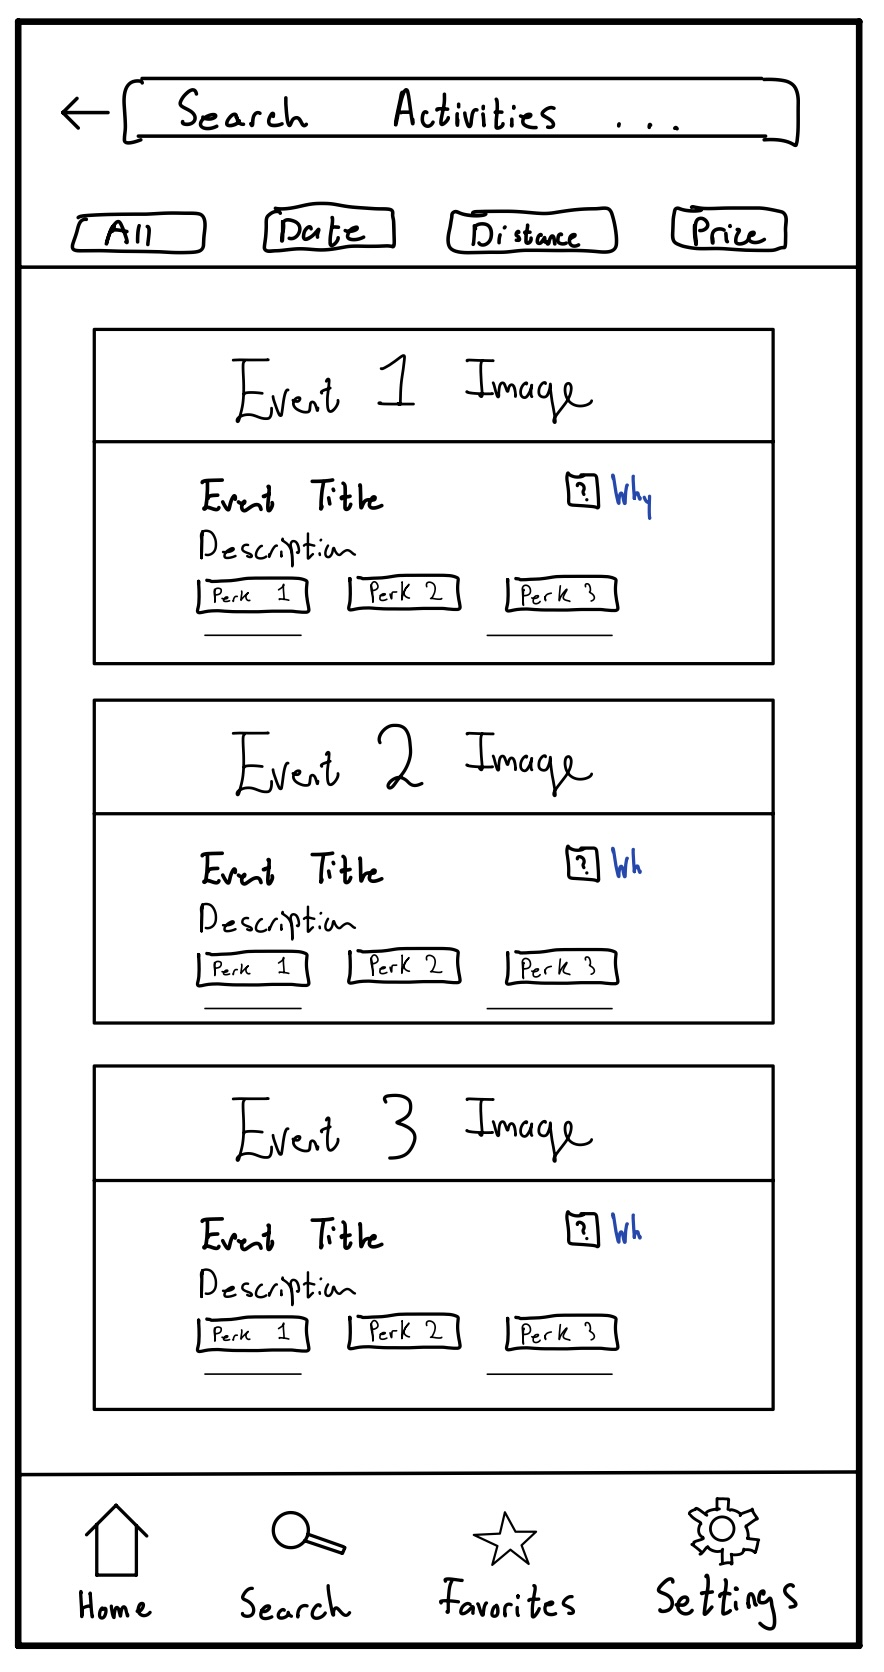 Search Activities ...
All Date Distance Price
Event 1 Image
Event Title ? Why
Description
Perk 1 Perk 2 Perk 3
Event 2 Image
Event Title ? Wh
Description
Perk 1 Perk 2 Perk 3
Event 3 Image
Event Title ? Wh
Description
Perk 1 Perk 2 Perk 3
Home Search Favorites Settings